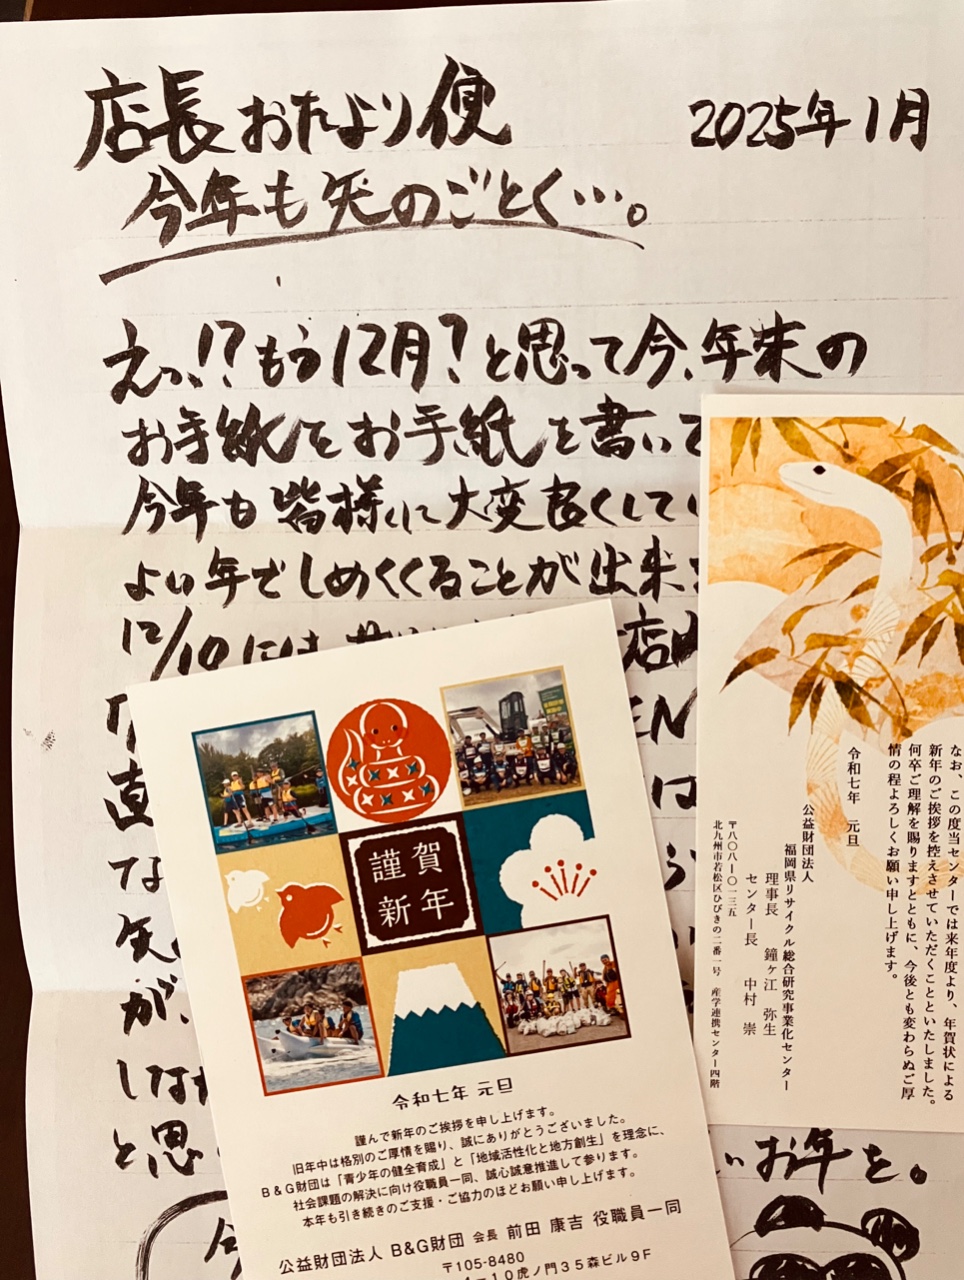 店長おたより便
2025年1月
今年も矢のごとく…。
えっ、!?もう12月?と思って今、年末の
お手紙をお手紙を書いて
今年も皆様に大変良くして
よい年でしめくくることが出来
12/10には
店
EN
直
は
な
矢
が、
しな
と思
いお年を。
今
謹賀
新年
令和七年 元旦
謹んで新年のご挨拶を申し上げます。
旧年中は格別のご厚情を賜り、誠にありがとうございました。
B&G財団は「青少年の健全育成」と「地域活性化と地方創生」を理念に、
社会課題の解決に向け役職員一同、誠心誠意推進して参ります。
本年も引き続きのご支援・ご協力のほどお願い申し上げます。
公益財団法人 B&G財団 会長 前田 康吉 役職員一同
〒105-8480
10虎ノ門35森ビル9F
なお、この度当センターでは来年度より、年賀状による
新年のご挨拶を控えさせていただくことといたしました。
何卒ご理解を賜りますとともに、今後とも変わらぬご厚
情の程よろしくお願い申し上げます。
令和七年 元旦
公益財団法人
福岡県リサイクル総合研究事業化センター
理事長 鐘ヶ江 弥生
センター長 中村 崇
〒八〇八ー〇一三五
北九州市若松区ひびきの二番一号 産学連携センター四階